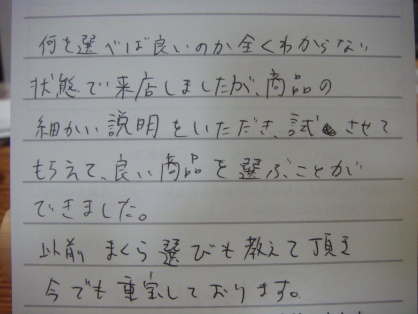 何を選べば良いのか全くわからない
状態で来店しましたが、商品の
細かい説明をいただき、試させて
もらえて、良い商品を選ぶことが
できました。
以前まくら選びも教えて頂き
今でも重宝しております。